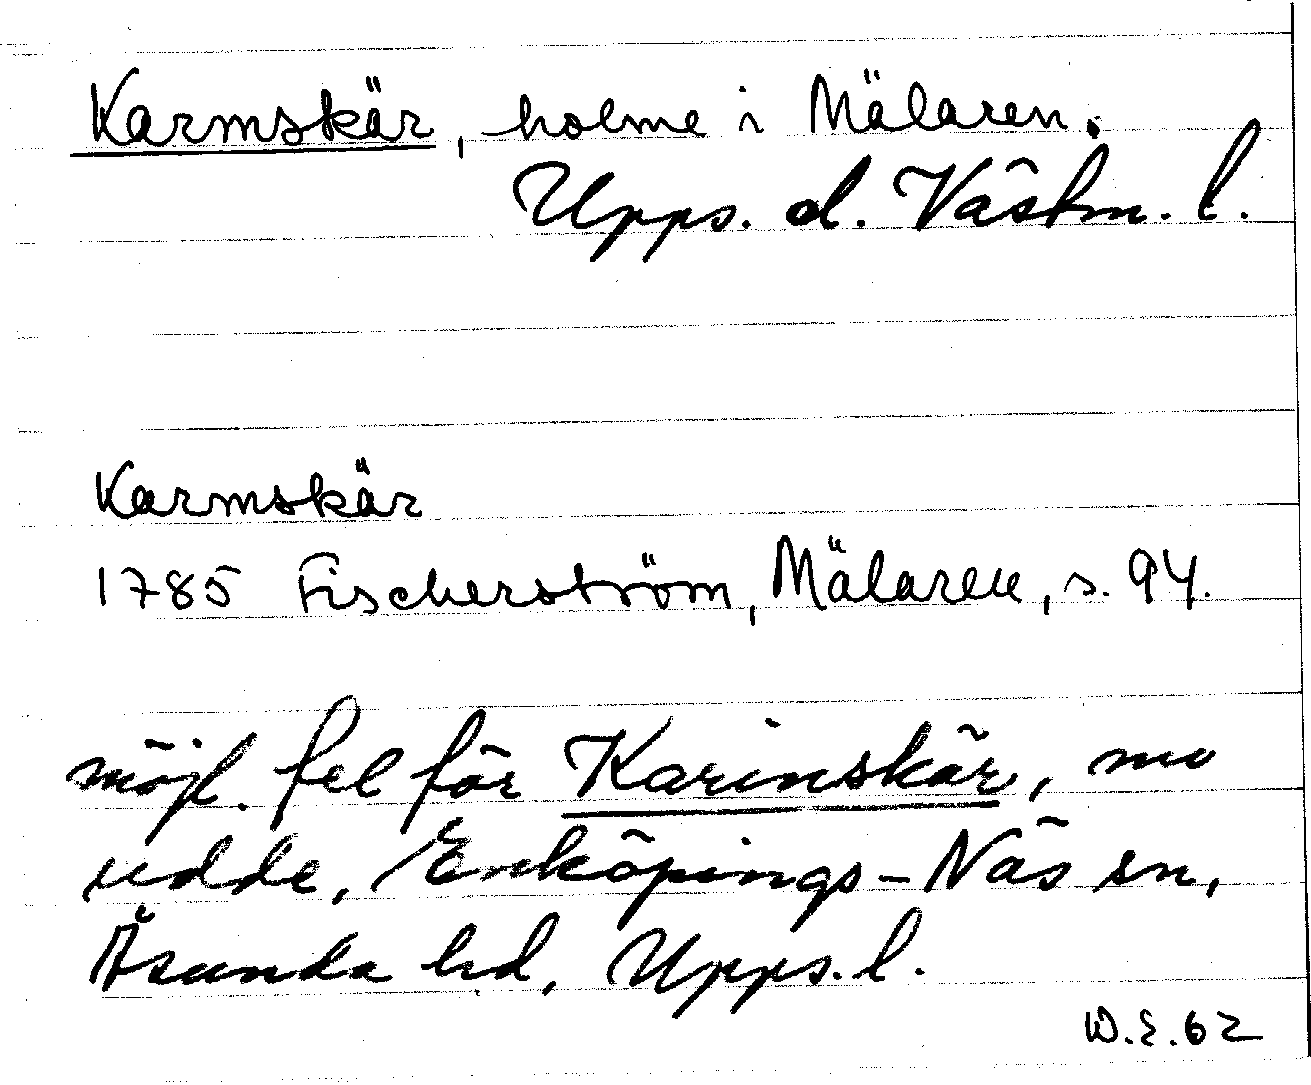 Karmskär, holme i Mälaren.
Upps. d. Västm. l.
Karmskär
1785 Fischerström, Mälaren, s. 94.
möjl. fel för Karinskär, nu
udde, Enköpings-Näs sn,
Åsunda hd, Upps. l.
W.E. 62